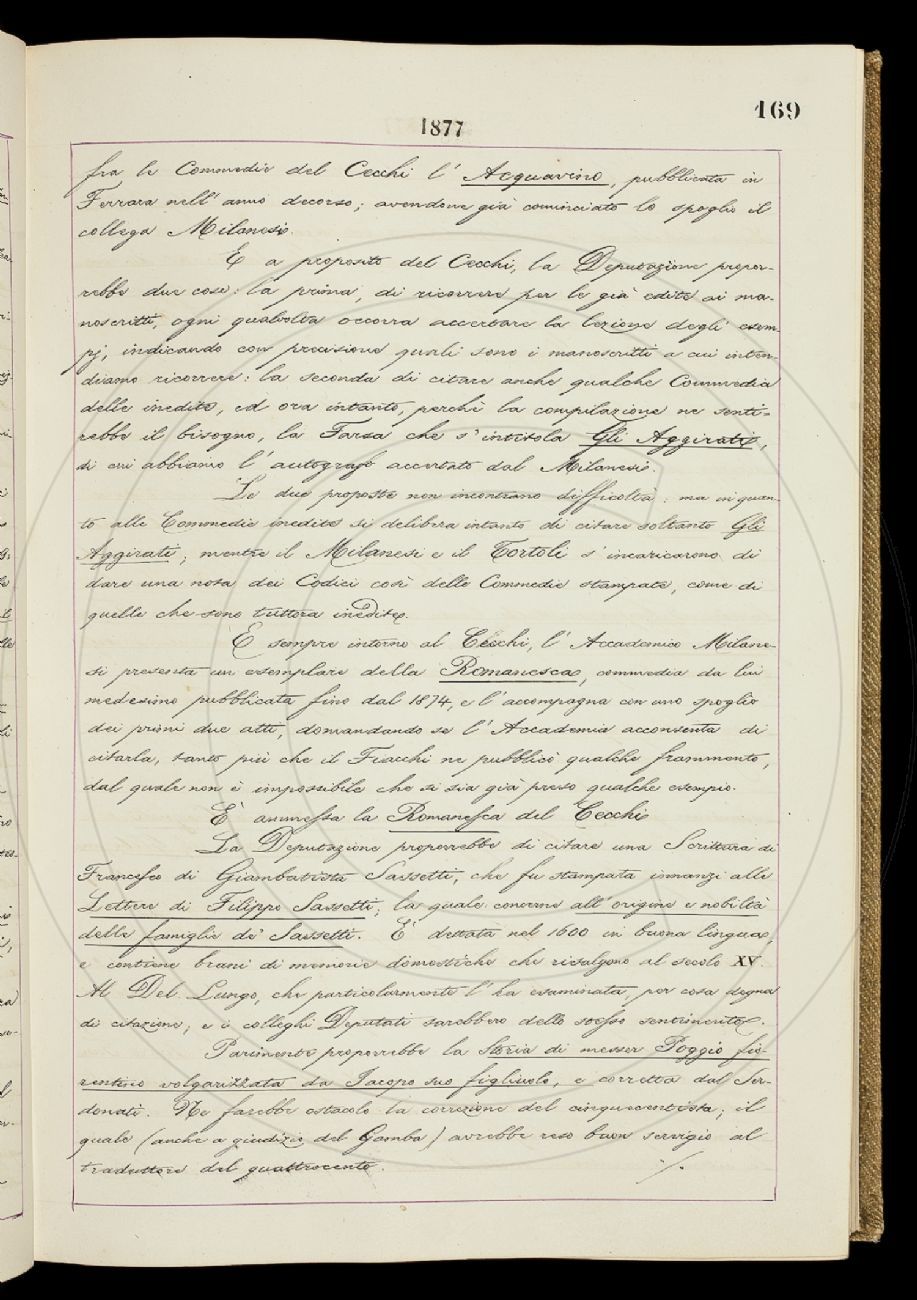 169
1877
fra le Commedie del Cecchi l' Acquavino, pubblicata in
Ferrara nell' anno decorso; avendone già cominciato lo spoglio il
collega Milanesi.
E a proposito del Cecchi, la Deputazione propor-
rebbe due cose: la prima, di ricorrere per le già edite ai ma-
noscritti, ogni qualvolta occorra accertare la lezione degli esem
pj, indicando con precisione quali sono i manoscritti a cui inten-
diamo ricorrere: la seconda di citare anche qualche Commedia
delle inedite, ed ora intanto, perchè la compilazione ne senti-
rebbe il bisogno, la Farsa che s' intitola Gli Aggirati,
di cui abbiamo l' autografo accertato dal Milanesi.
Le due proposte non incontrano difficoltà: ma in quan-
to alle Commedie inedite si delibera intanto di citare soltanto Gli
Aggirati; mentre il Milanesi e il Tortoli s' incaricarono di
dare una nota dei Codici così delle Commedie stampate, come di
quelle che sono tuttora inedite.
E sempre intorno al Cecchi, l' Accademico Milane-
si presenta un esemplare della Romanesca, commedia da lui
medesimo pubblicata fino dal 1874, e l' accompagna con uno spoglio
dei primi due atti, domandando se l' Accademia acconsenta di
citarla, tanto più che il Fiacchi ne pubblicò qualche frammento,
dal quale non è impossibile che si sia già preso qualche esempio.
È ammessa la Romanesca del Cecchi
La Deputazione proporrebbe di citare una Scrittura di
Francesco di Giambatista Sassetti, che fu stampata innanzi alle
Lettere di Filippo Sassetti, la quale concerne all' origine e nobiltà
delle famiglie de' Sassetti. È dettata nel 1600 in buona lingua,
e contiene brani di memorie domestiche che risalgono al secolo XV.
Al Del Lungo, che particolarmente l' ha esaminata, par cosa degna
di citazione; e i colleghi Deputati sarebbero dello stesso sentimento.
Parimente proporrebbe la Storia di messer Poggio fio-
rentino volgarizzata da Jacopo suo figliuolo, e corretta dal Ser-
donati. Ne farebbe ostacolo la correzione del cinquecentista; il
quale (anche a giudizio del Gamba) avrebbe reso buon servigio al
traduttore del quattrocento.
./.